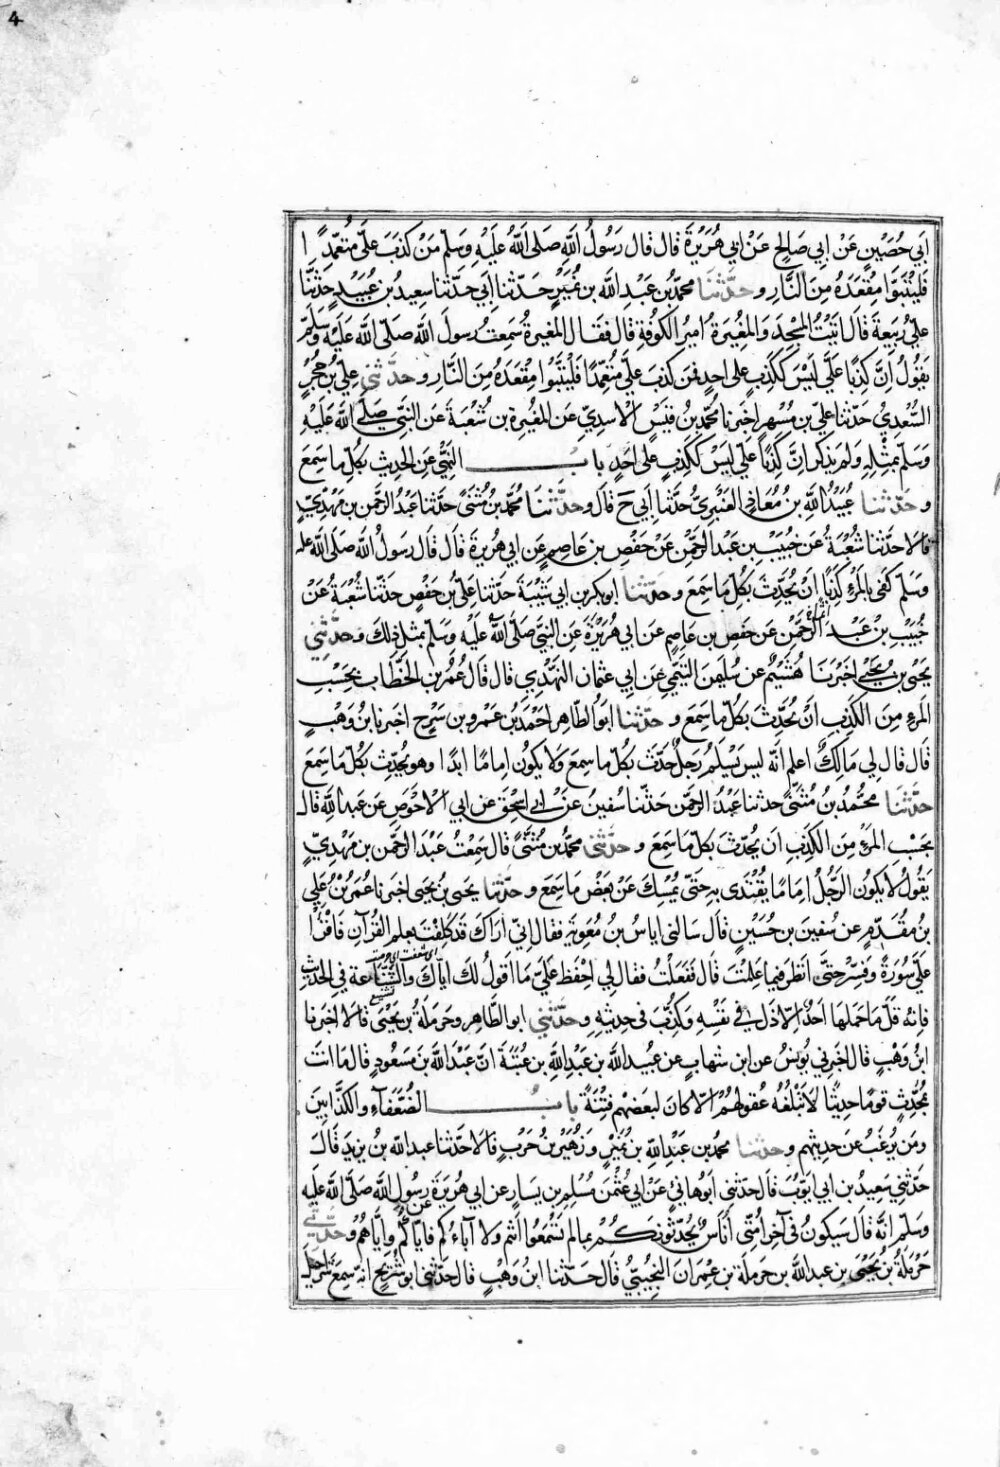 4
ابي حُصَيْنٍ عَنْ ابِي صَالِحٍ عَنْ ابي هُرَيْرَةَ قال قال رَسُولُ اللَّهِ صَلى اللَّهُ عَلَيْهِ وَسَلّم مَنْ كَذَبَ عَلَيَّ مُتعَمِّدًا
فَليَتَبَوَّا مِقعَدَهُ مِنَ النَّارِ وحَدَّثنَا محمّد بن عَبدِ اللَّه بن نُمَيْرٍ حَدّثنا ابي حَدّثنا سعيد بن عُبَيدٍ حَدّثنا
عليّ رَبيعَة قَالَ اتَيْتُ المسْجِدَ وَالمُغِيرَةُ امِيرُ الكُوفَةِ قال فَقَال المغيرةُ سَمِعتُ رَسولَ اللَّه صَلّى اللَّه عَلَيْهِ وسَلم
يَقُولُ انَّ كَذِبًا عَلَيَّ لَيْسَ كَكَذِبٍ على احدٍ فمَن كَذبَ عَليَّ مُتعَمِّدًا فَليَتَبَوَّا مِقْعَدَهُ مِنَ النَّارِ وحَدّثني عليّ بن حُجْرٍ
السَّعْدِيُّ حَدّثنا عليّ بن مُسْهِرٍ اخبَرنا محمّد بن قَيْسٍ الاسدِيّ عَن المغُيرة بن شُعْبَة عَن النّبي صَلّى اللَّه عَلَيْهِ
وَسَلّم بمثْلِهِ وَلم يَذكر انَّ كَذِبًا عَلَيّ لَيْسَ كَكَذِبٍ على احَدٍ بابُ النَّهْيِ عَن الحديث بكلّ ما سَمِعَ
وحَدّثنا عُبَيْدُ اللَّهِ بن مُعَاذٍ العَنبَرِيُّ حَدّثنا ابي ح قَالَ وحَدَّثَنَا محمَّد بن مُثنَّى حَدّثنا عَبْدُ الرّحمَن بن مَهْدِيٍّ
قالا حَدّثنا شُعْبَة عَن خُبَيْب بن عَبد الرَّحمن عَنْ حَفْصِ بن عَاصِمٍ عَن ابي هُريرة قال قَال رَسُولُ اللَّه صَلى اللَّه عليه
وَسَلّم كَفى بالمرْءِ كَذِبًا انْ يُحَدّثَ بكلّ ما سَمِعَ وحَدّثنا ابو بكر بن ابي شَيْبَة حَدّثنا عليّ بن حَفْصٍ حَدّثنا شُعْبة عَنْ
خُبَيْبِ بنْ عَبد الرَّحمن عَن حَفصِ بن عَاصِمٍ عَن ابي هُرَيْرَة عَن النّبيّ صَلّى اللَّه عَلَيْهِ وَسَلّم بمثل ذلِكَ وحَدَّثني
يَحْيَى بن يَحْيَى اخبَرنا هُشَيْمٌ عن سُليمَن التّيْمي عَن ابي عثمان النَّهْدِيّ قال قالَ عُمَر بن الخَطّاب بحَسْبِ
المَرءِ مِنَ الكَذِبِ انْ يُحَدّثَ بكلّ ما سَمِعَ وحَدّثنا ابوُ الطّاهِر احْمَد بن عَمْرو بن سَرْحٍ اخبرنا بنُ وَهْبٍ
قَال قال لي مَالِكٌ اعلم انّه ليس يَسْلَم رَجلٌ حَدّث بكلّ ما سَمِعَ وَلا يكُون امامًا ابدًا وهو يُحَدّث بكُلّ ما سَمِعَ
حدّثنا محمّد بن مُثنَّى حدثنا عَبدُ الرّحمن حَدّثنا سُفينُ عَنْ ابي اسحق عَن ابي الاحْوَصِ عَن عَبد اللَّه قالَ
بحَسْبِ المَرْءِ مِنَ الكَذِبِ ان يُحَدّثَ بكُلّ مَا سَمِعَ وحَدّثني محمّد بن مُثنَّى قال سَمِعْتُ عَبْدَ الرَّحمن بن مَهْدِيٍّ
يَقُولُ لا يكُون الرَّجُلُ اِمَامًا يُقْتَدَى به حَتّى يُمْسِكَ عَنْ بَعْضِ مَا سَمِعَ وحَدّثنا يَحيى بن يَحْيى اخبَرنا عُمَر بْن عَلِيّ
بن مُقَدَّمٍ عن سُفينَ بن حُسَيْنٍ قَال سَالَني ايَاسُ بنُ مُعوِيَة فقال انِّي اَرَاكَ قَد كَلِفْتَ بعلم القُرآنِ فَاقْرَا
عَلَيّ سُورَةً وَفَسِّرْ حتَّى انظرَ فيما عَلِمْتَ قَالَ فَفَعَلْتُ فقال لِي احْفظ عَلَيّ مَا اَقولُ لك اياكَ والشَّنَاعَة فِي الحَديثِ
فاِنهُ قَلّ ما حَملَهَا احَدٌ الا ذَلّ في نَفْسِهِ وَكُذِّبَ في حَدِيثِهِ وحَدّثني ابو الطَّاهِر وحَرمَلَةُ بن يَحيَى قالا اخبَرنا
ابنُ وَهْبٍ قال اخبَرني يُونُسُ عن ابن شهابٍ عن عُبيد اللَّه بن عَبْدِ اللَّهِ بن عُتبَة انّ عَبْدَ اللَّه بن مَسْعُودٍ قال مَا انتَ
بمُحَدّثٍ قومًا حديثًا لا تَبْلُغُهُ عُقولُهُمْ الاّ كان لبعَضهم فِتنَةً بابُ الضُّعَفَآءِ والكَذّابينَ
ومَن يُرغَبُ عَن حَديثهم وحدثنا محمد بن عَبْدِ اللَّهِ بن نُمَيْرٍ وَزُهَيْر بنُ حَربٍ قالا حَدّثنا عبد اللَّه بن يزيدَ قَالَ
حَدّثني سَعِيدُ بن ابي اَيّوب قال حَدّثني ابُو هَانِئٍ عَنْ ابي عُثْمنَ مُسْلِم بن يَسَارٍ عن ابي هُرَيْرَة عَن رَسُول اللَّه صَلى اللَّه عَلَيْهِ
وسَلّم انّه قَال سَيكونُ في آخِر امَّتِي اُنَاسٌ يُحَدّثونَكُمْ بما لم تَسْمَعُوا انتُم ولا آبَاؤكُم فايَّاكم وايّاهُمْ وحَدّثني
حَرْمَلَةُ بنُ يَحيَى بن عبد اللَّه بن حَرملَة بن عِمْرَانَ التجيبيّ قَال حَدّثنا ابنُ وَهْبٍ قال حَدّثني ابو شُرَيْحٍ انّه سَمِعَ شَراحِيل